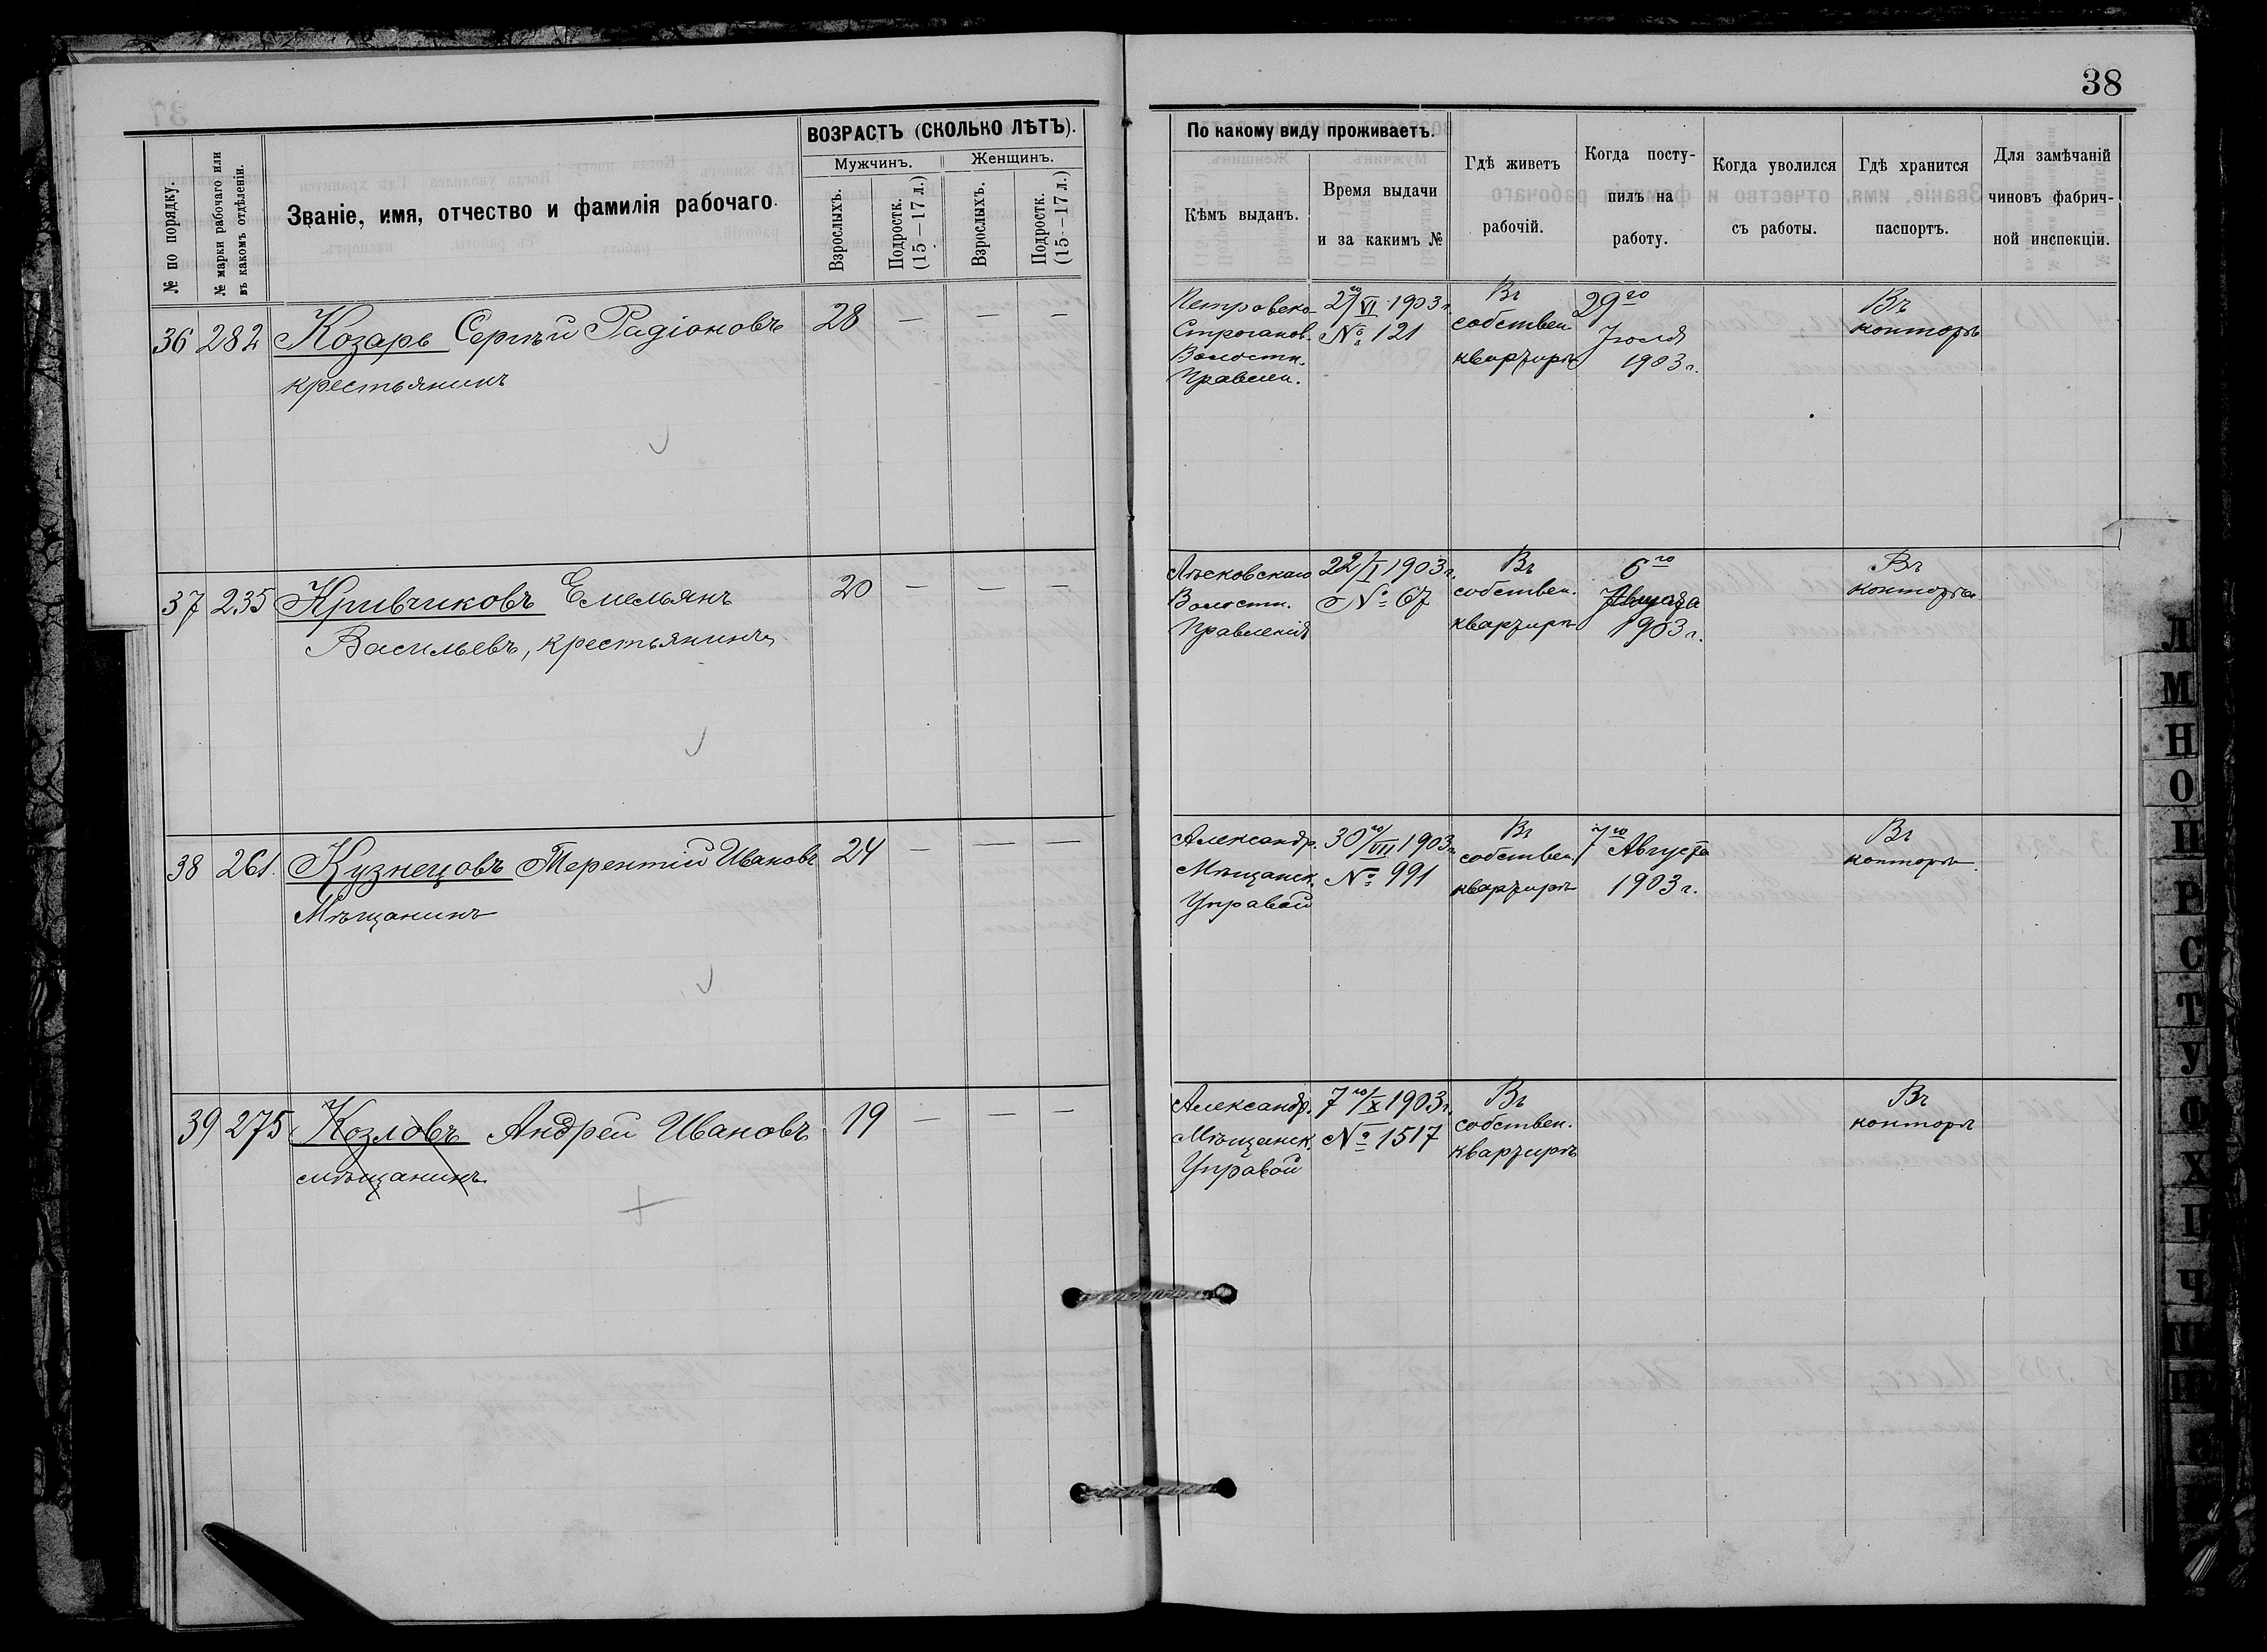 38
ВОЗРАСТЪ (СКОЛЬКО ЛѢТЪ).
Мужчинъ.
Женщинъ.
№ по порядку.
№ марки рабочаго или
въ какомъ отдѣленіи.
Званіе, имя, отчество и фамилія рабочаго.
Взрослыхъ.
Подростк.
(15—17 л.)
Взрослыхъ.
Подростк.
(15—17 л.)
По какому виду проживаетъ.
Кѣмъ выданъ.
Время выдачи
и за какимъ №
Гдѣ живетъ
рабочій.
Когда посту-
пилъ на
работу.
Когда уволился
съ работы.
Гдѣ хранится
паспортъ.
Для замѣчаній
чиновъ фабрич-
ной инспекціи.
36 282 Козарь Сергѣй Радіоновъ 28 — — —
крестьянинъ
Петровско-
Строганов.
Волостн.
Правлен.
VI 1903 г.
№ 121
Въ
собствен.
квартирѣ
29го
Іюля
1903 г.
Въ
конторѣ
37 235 Кривчиковъ Емельянъ 20 — — —
Васильевъ, крестьянинъ
Волостн.
Правленія
22/I 1903 г.
№ 67
Въ
собствен.
квартирѣ
6го
Августа
1903 г.
Въ
конторѣ
38 261. Кузнецовъ Терентій Ивановъ 24 — — —
Мѣщанинъ
Александр.
Мѣщанск.
Управой
30го/VII 1903 г.
№ 991
Въ
собствен.
квартирѣ
7го Августа
1903 г.
Въ
конторѣ
39 275 Козловъ Андрей Ивановъ 19 — — —
мѣщанинъ
Александр.
Мѣщанск.
Управой
7го/X 1903 г.
№ 1517
Въ
собствен.
квартирѣ
Въ
конторѣ
Л
М
Н
О
П
Р
С
Т
У
Ф
Х
Ц
Ч